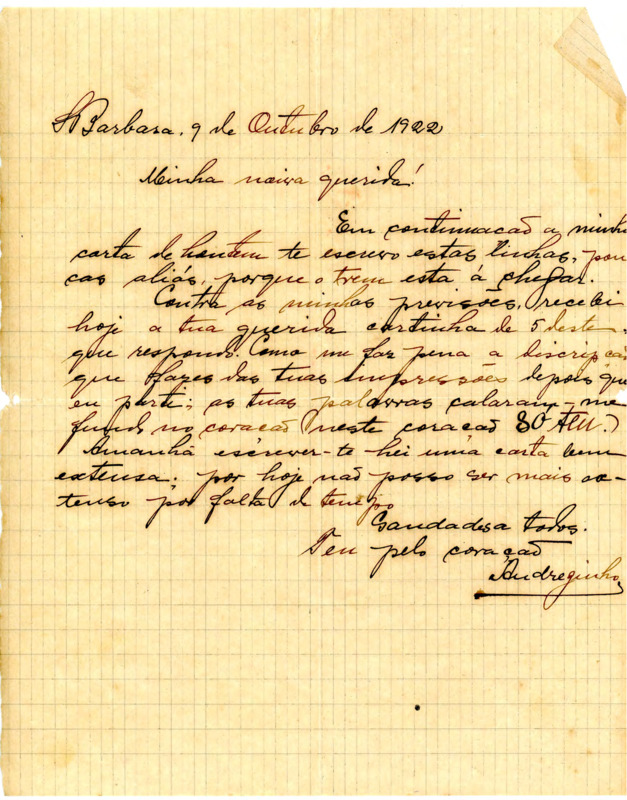 Sta Barbara, 9 de Outubro de 1922
Minha noiva querida!
Em continuacão a minha
carta de hontem te escrevo estas linhas, pou
cas aliás, porque o trem está á chegar.
Contra as minhas previsões, recebi
hoje a tua querida cartinha de 5 deste
que respondo. Como me faz pena a discripcão
que fazes das tuas impressões depois que
eu parti; as tuas palavras calaram-me
fundo no coracão (neste coracão SO TEU.)
Amanhã escrever-te hei uma carta bem
extensa; por hoje não posso ser mais ex-
tenso por falta de tempo
Saudades a todos.
Teu pelo coração
Andreginho